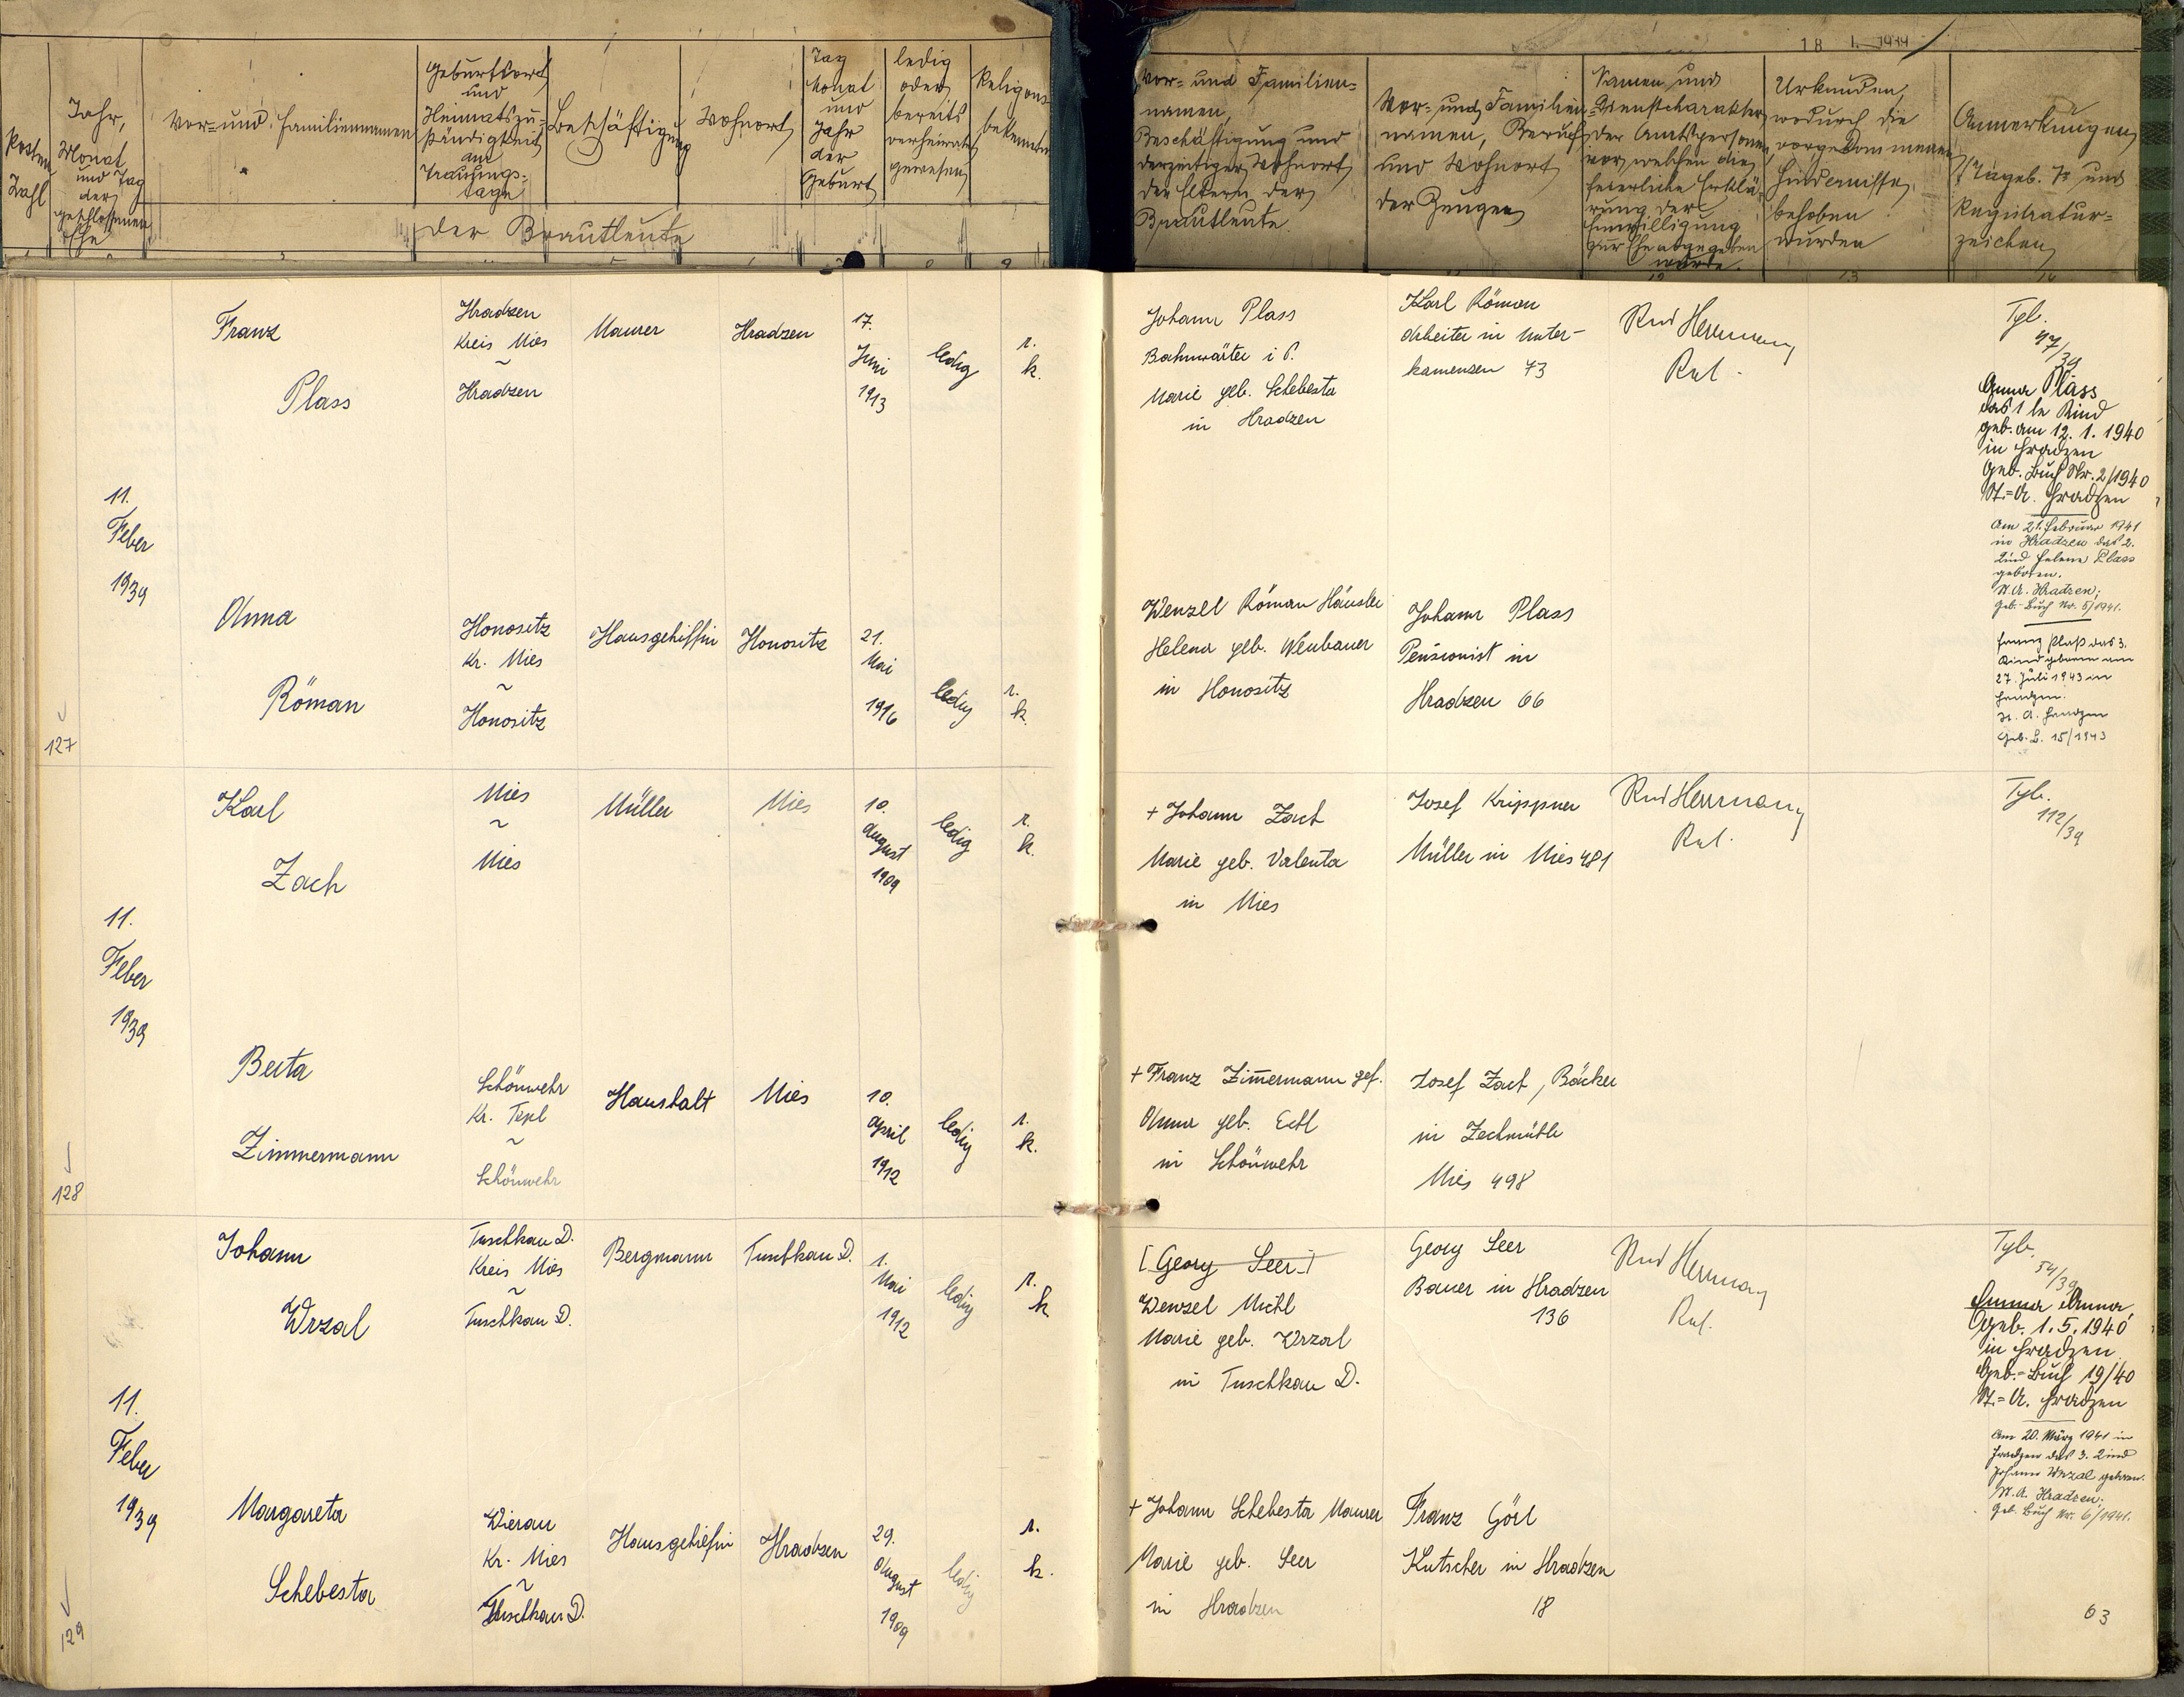 Posten
Zahl
Jahr,
Monat
und Tag
der
geschlossenen
Ehe
Vor- und Familiennamen
Geburtsort
und
Heimatszu-
ständigkeit
am
Trauungs-
tage
Beschäftigung
Wohnort
Tag
Monat
und
Jahr
der
Geburt
ledig
oder
bereits
verheiratet
gewesen
Religions-
bekenntnis
der Brautleute
18 1. 1939
Vor- und Familien-
namen,
Beschäftigung und
derzeitiger Wohnort
der Eltern der
Brautleute.
Vor- und Familien-
namen, Beruf
und Wohnort
der Zeugen
Namen und
Dienstcharakter
der Amtsperson
vor welcher die
feierliche Erklä-
rung der
Einwilligung
zur Ehe abgegeben
wurde.
Urkunden,
wodurch die
vorgekommenen
Hindernisse,
behoben
wurden
Anmerkungen
Tageb. Zl. und
Registratur-
zeichen
127
11.
Feber
1939
Franz
Plass
Hradzen
Kreis Mies
~
Hradzen
Maurer
Hradzen
17.
Juni
1913
ledig
r.
k.
Johann Plass
Bahnwärter i P.
Marie geb. Schebesta
in Hradzen
Karl Röman
Arbeiter in Unter-
kamenzen 73
Rud Herrmann
Tgb.
97/39
Anna Plass
das 1te Kind
geb. am 12. 1. 1940
in Hradzen
Geb. Buch Nr. 2/1940
St.=A. Hradzen
Am 21. Februar 1941
in Hradzen das 2.
Kind Helene Plass
geboren.
St. A. Hradzen;
Geb. Buch Nr. 5/1941.
Franz Plaß das 3.
Kind geboren am
27. Juli 1943 in
Hradzen.
St. A. Hradzen
Geb. B. 15/1943
Anna
Röman
Honositz
Kr. Mies
~
Honositz
Hausgehilfin
Honositz
21.
Mai
1916
ledig
r.
k.
Wenzel Röman Häusler
Helena geb. Neubauer
in Honositz
Johann Plass
Pensionist in
Hradzen 66
128
11.
Feber
1939
Karl
Zach
Mies
~
Mies
Müller
Mies
10.
August
1909
ledig
r.
k.
+ Johann Zach
Marie geb. Valenta
in Mies
Josef Krippner
Müller in Mies 481
Rud Herrmann
Tgb.
112/39
Berta
Zimmermann
Schönwehr
Kr. Tepl
~
Schönwehr
Haushalt
Mies
10.
April
1912
ledig
r.
k.
+ Franz Zimmermann gef.
Anna geb. Ertl
in Schönwehr
Josef Zach, Bäcker
in Zechmühle
Mies 498
129
11.
Feber
1939
Johann
Wrzal
Tuschkau D.
Kreis Mies
~
Tuschkau D.
Bergmann
Tuschkau D.
1.
Mai
1912
ledig
r.
k
[Georg Seer]
Wenzel Michl
Marie geb. Wrzal
in Tuschkau D.
Georg Seer
Bauer in Hradzen
136
Rud Herrmann
Tgb.
54/39
Emma Anna
geb. 1. 5. 1940
in Hradzen
Geb.-Buch 19/40
St.=A. Hradzen
Am 20. März 1941 in
Hradzen das 3. Kind
Johann Wrzal geboren.
St. A. Hradzen;
Geb. Buch Nr. 6/1941.
Margareta
Schebesta
Wierau
Kr. Mies
~
Tuschkau D.
Hausgehilfin
Hradzen
29.
August
1909
ledig
r.
k.
+ Johann Schebesta Maurer
Marie geb. Seer
in Hradzen
Franz Görl
Kutscher in Hradzen
18
63